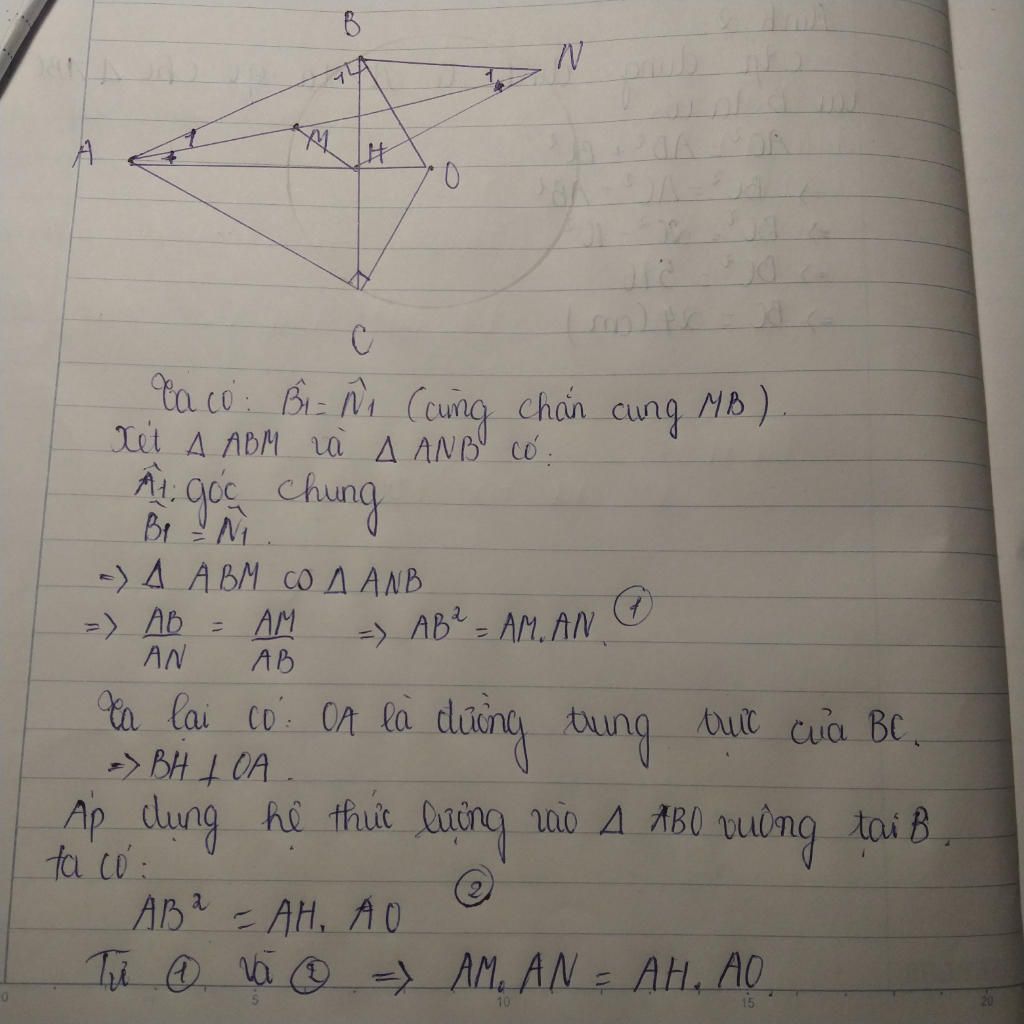 B
N
1
1
A
1
M
H
O
C
Ta có: B̂1 = N̂1 (cùng chắn cung MB).
Xét Δ ABM và Δ ANB có:
Â1: góc chung
B̂1 = N̂1.
=> Δ ABM ∽ Δ ANB
=> AB/AN = AM/AB => AB² = AM.AN. ①
Ta lại có: OA là đường trung trực của BC.
=> BH ⊥ OA.
Áp dụng hệ thức lượng vào Δ ABO vuông tại B.
ta có:
AB² = AH. AO ②
Từ ① và ② => AM. AN = AH. AO
0 5 10 15 20